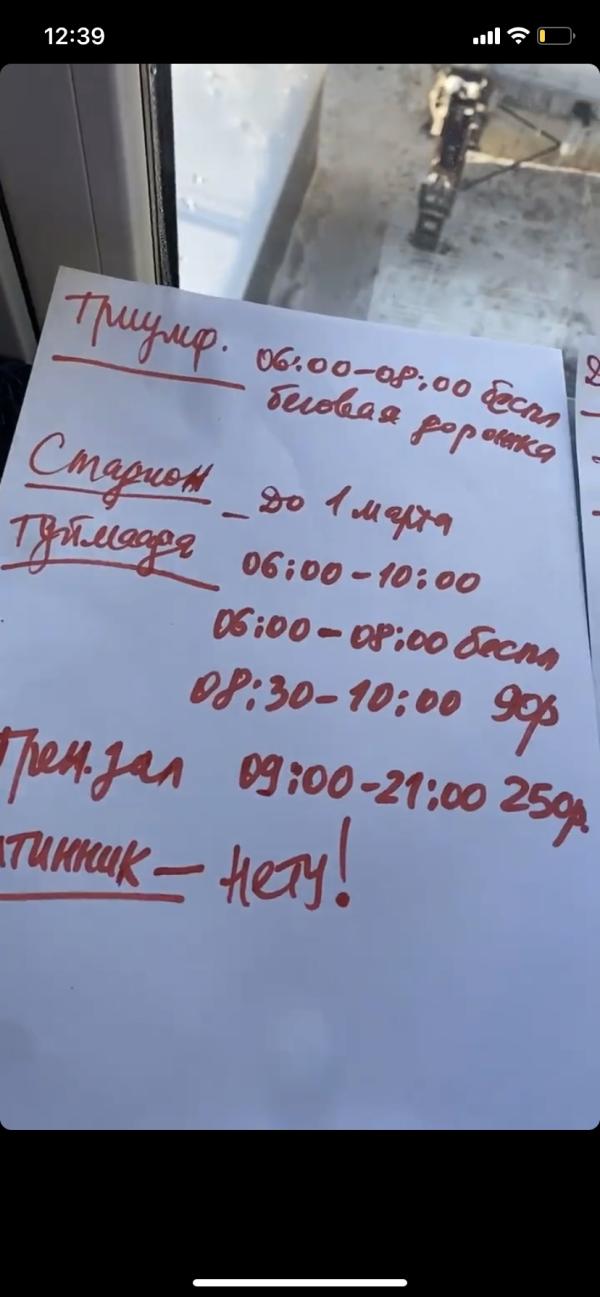 12:39
Триумф. 06:00-08:00 беспл
беговая дорожка
Стадион - до 1 марта
Туймаада 06:00-10:00
06:00-08:00 беспл
08:30-10:00 90р
Трен.зал 09:00-21:00 250р.
тинник - нету!